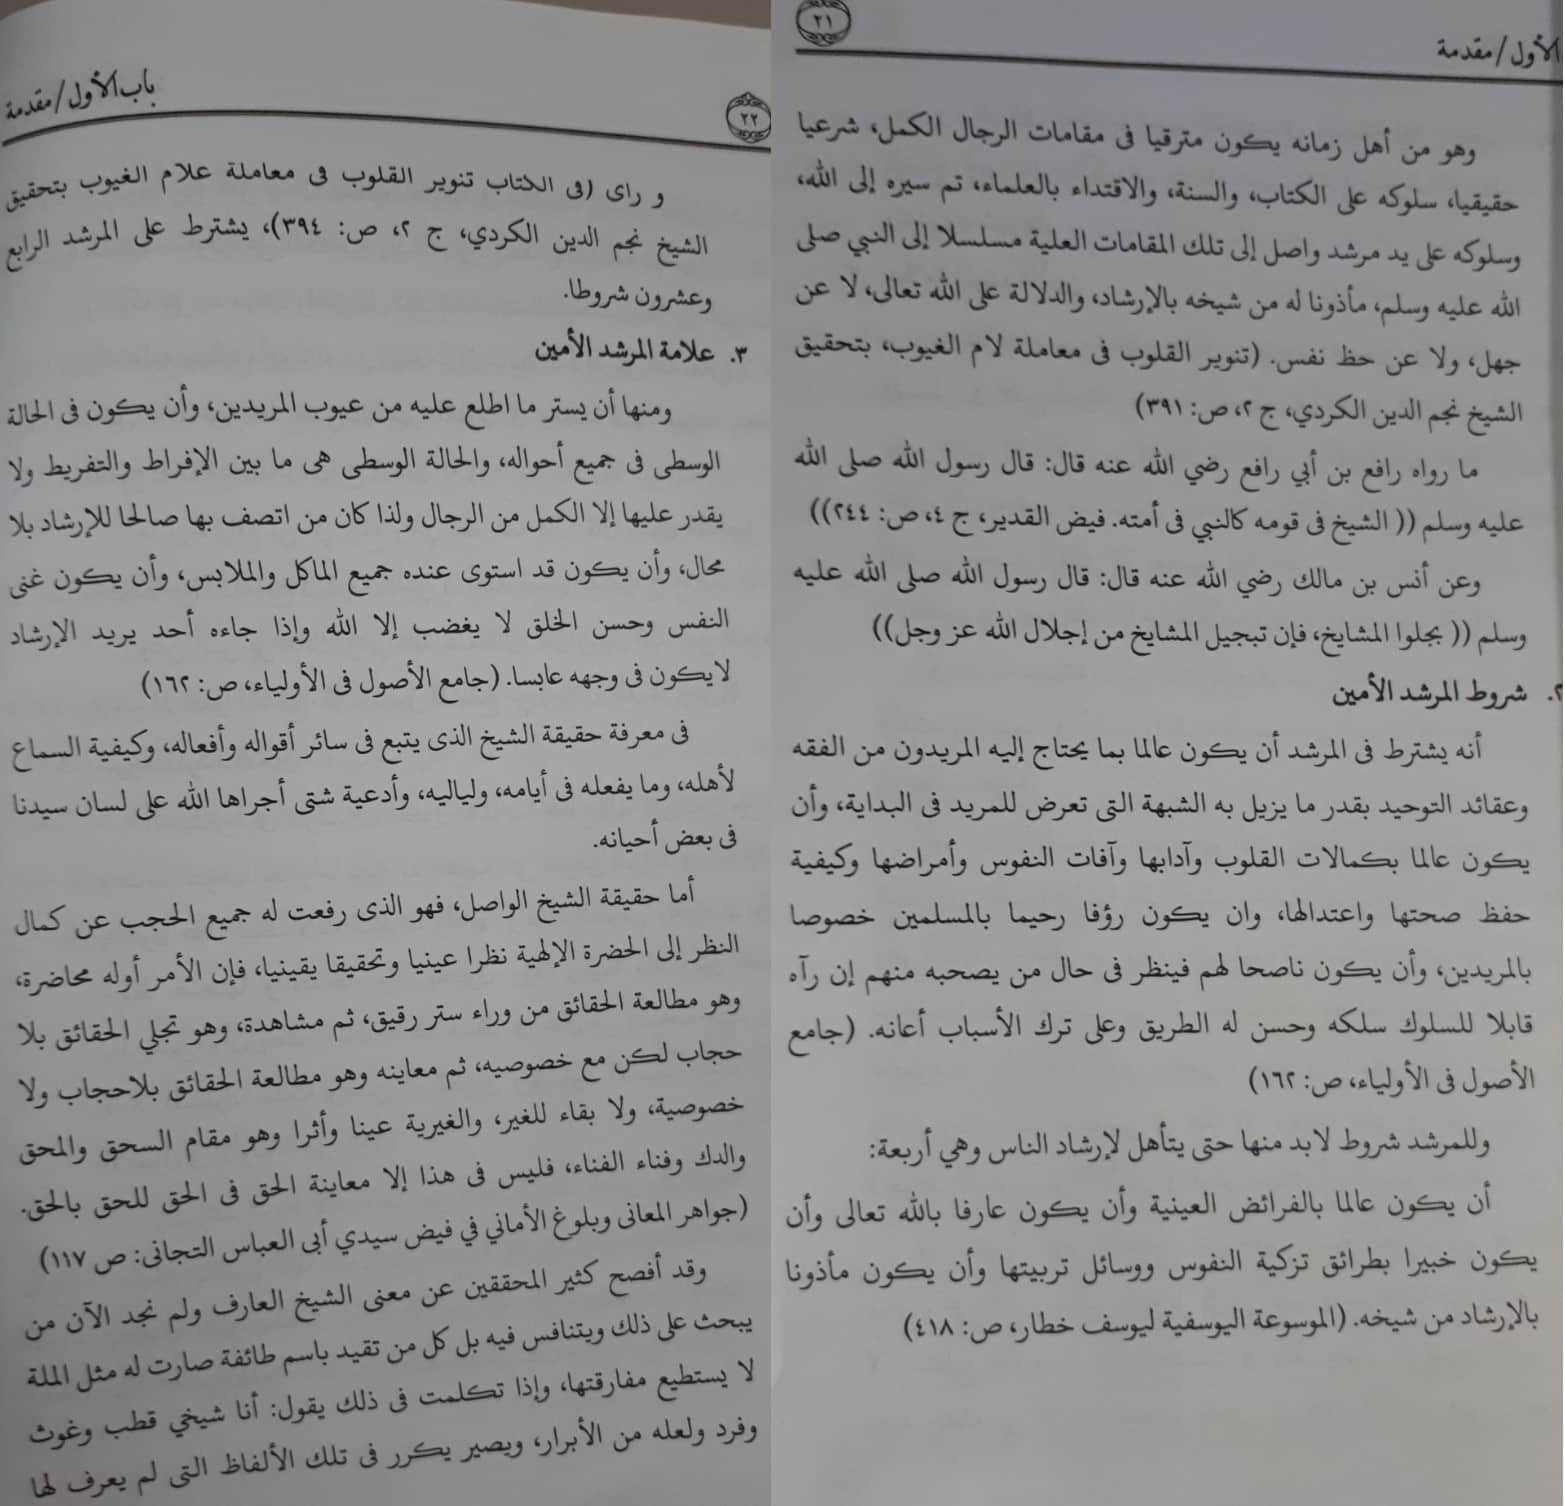 ٢١
الأول/مقدمة
وهو من أهل زمانه يكون مترقيا فى مقامات الرجال الكمل، شرعيا
حقيقيا، سلوكه على الكتاب، والسنة، والاقتداء بالعلماء، تم سيره إلى الله،
وسلوكه على يد مرشد واصل إلى تلك المقامات العلية مسلسلا إلى النبي صلى
الله عليه وسلم، مأذونا له من شيخه بالإرشاد، والدلالة على الله تعالى، لا عن
جهل، ولا عن حظ نفس. (تنوير القلوب فى معاملة لام الغيوب، بتحقيق
الشيخ نجم الدين الكردي، ج ٢، ص: ٣٩١)
ما رواه رافع بن أبي رافع رضي الله عنه قال: قال رسول الله صلى الله
عليه وسلم (( الشيخ فى قومه كالنبي فى أمته. فيض القدير، ج ٤، ص: ٢٤٤))
وعن أنس بن مالك رضي الله عنه قال: قال رسول الله صلى الله عليه
وسلم (( بجلوا المشايخ، فإن تبجيل المشايخ من إجلال الله عز وجل))
٢. شروط المرشد الأمين
أنه يشترط فى المرشد أن يكون عالما بما يحتاج إليه المريدون من الفقه
وعقائد التوحيد بقدر ما يزيل به الشبهة التى تعرض للمريد فى البداية، وأن
يكون عالما بكمالات القلوب وآدابها وآفات النفوس وأمراضها وكيفية
حفظ صحتها واعتدالها، وان يكون رؤفا رحيما بالمسلمين خصوصا
بالمريدين، وأن يكون ناصحا لهم فينظر فى حال من يصحبه منهم إن رآه
قابلا للسلوك سلكه وحسن له الطريق وعلى ترك الأسباب أعانه. (جامع
الأصول فى الأولياء، ص: ١٦٢)
وللمرشد شروط لابد منها حتى يتأهل لإرشاد الناس وهي أربعة:
أن يكون عالما بالفرائض العينية وأن يكون عارفا بالله تعالى وأن
يكون خبيرا بطرائق تزكية النفوس ووسائل تربيتها وأن يكون مأذونا
بالإرشاد من شيخه. (الموسوعة اليوسفية ليوسف خطار، ص: ٤١٨)
باب الأول/مقدمة
٢٢
و راى (فى الكتاب تنوير القلوب فى معاملة علام الغيوب بتحقيق
الشيخ نجم الدين الكردي، ج ٢، ص: ٣٩٤)، يشترط على المرشد الرابع
وعشرون شروطا.
٣. علامة المرشد الأمين
ومنها أن يستر ما اطلع عليه من عيوب المريدين، وأن يكون فى الحالة
الوسطى فى جميع أحواله، والحالة الوسطى هى ما بين الإفراط والتفريط ولا
يقدر عليها إلا الكمل من الرجال ولذا كان من اتصف بها صالحا للإرشاد بلا
محال، وأن يكون قد استوى عنده جميع الماكل والملابس، وأن يكون غنى
النفس وحسن الخلق لا يغضب إلا الله وإذا جاءه أحد يريد الإرشاد
لايكون فى وجهه عابسا. (جامع الأصول فى الأولياء، ص: ١٦٢)
فى معرفة حقيقة الشيخ الذى يتبع فى سائر أقواله وأفعاله، وكيفية السماع
لأهله، وما يفعله فى أيامه، ولياليه، وأدعية شتى أجراها الله على لسان سيدنا
فى بعض أحيانه.
أما حقيقة الشيخ الواصل، فهو الذى رفعت له جميع الحجب عن كمال
النظر إلى الحضرة الإلهية نظرا عينيا وتحقيقا يقينيا، فإن الأمر أوله محاضرة،
وهو مطالعة الحقائق من وراء ستر رقيق، ثم مشاهدة، وهو تجلي الحقائق بلا
حجاب لكن مع خصوصيه، ثم معاينه وهو مطالعة الحقائق بلاحجاب ولا
خصوصية، ولا بقاء للغير، والغيرية عينا وأثرا وهو مقام السحق والمحق
والدك وفناء الفناء، فليس فى هذا إلا معاينة الحق فى الحق للحق بالحق.
(جواهر المعانى وبلوغ الأماني في فيض سيدي أبى العباس التجانى: ص ١١٧)
وقد أفصح كثير المحققين عن معنى الشيخ العارف ولم نجد الآن من
يبحث على ذلك ويتنافس فيه بل كل من تقيد باسم طائفة صارت له مثل الملة
لا يستطيع مفارقتها، وإذا تكلمت فى ذلك يقول: أنا شيخي قطب وغوث
وفرد ولعله من الأبرار، ويصير يكرر فى تلك الألفاظ التى لم يعرف لها